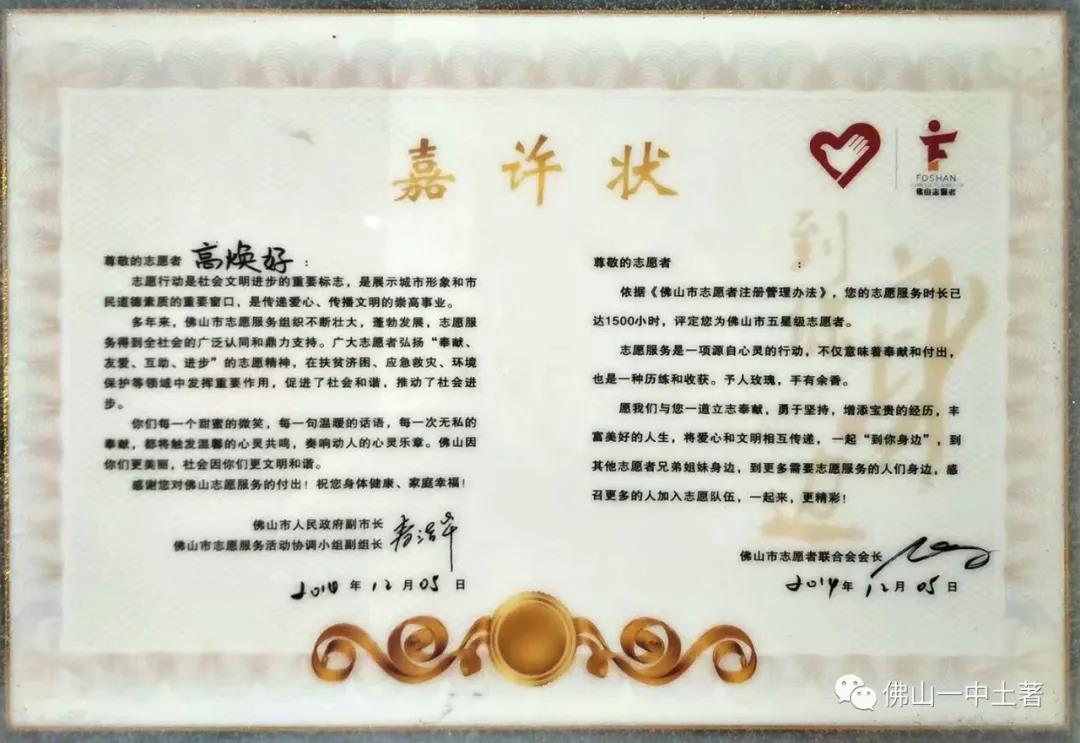 嘉许状
FOSHAN
佛山志愿者
尊敬的志愿者 高焕好 :
志愿行动是社会文明进步的重要标志，是展示城市形象和市
民道德素质的重要窗口，是传递爱心、传播文明的崇高事业。
多年来，佛山市志愿服务组织不断壮大，蓬勃发展，志愿服
务得到全社会的广泛认同和鼎力支持。广大志愿者弘扬“奉献、
友爱、互助、进步”的志愿精神，在扶贫济困、应急救灾、环境
保护等领域中发挥重要作用，促进了社会和谐，推动了社会进
步。
你们每一个甜蜜的微笑，每一句温暖的话语，每一次无私的
奉献，都将触发温馨的心灵共鸣，奏响动人的心灵乐章。佛山因
你们更美丽，社会因你们更文明和谐。
感谢您对佛山志愿服务的付出！祝您身体健康、家庭幸福！
佛山市人民政府副市长
佛山市志愿服务活动协调小组副组长
2014 年 12 月 05 日
尊敬的志愿者 :
依据《佛山市志愿者注册管理办法》，您的志愿服务时长已
达1500小时，评定您为佛山市五星级志愿者。
志愿服务是一项源自心灵的行动，不仅意味着奉献和付出，
也是一种历练和收获。予人玫瑰，手有余香。
愿我们与您一道立志奉献，勇于坚持，增添宝贵的经历，丰
富美好的人生，将爱心和文明相互传递，一起“到你身边”，到
其他志愿者兄弟姐妹身边，到更多需要志愿服务的人们身边，感
召更多的人加入志愿队伍，一起来，更精彩！
佛山市志愿者联合会会长
2014 年 12 月 05 日
佛山一中土著